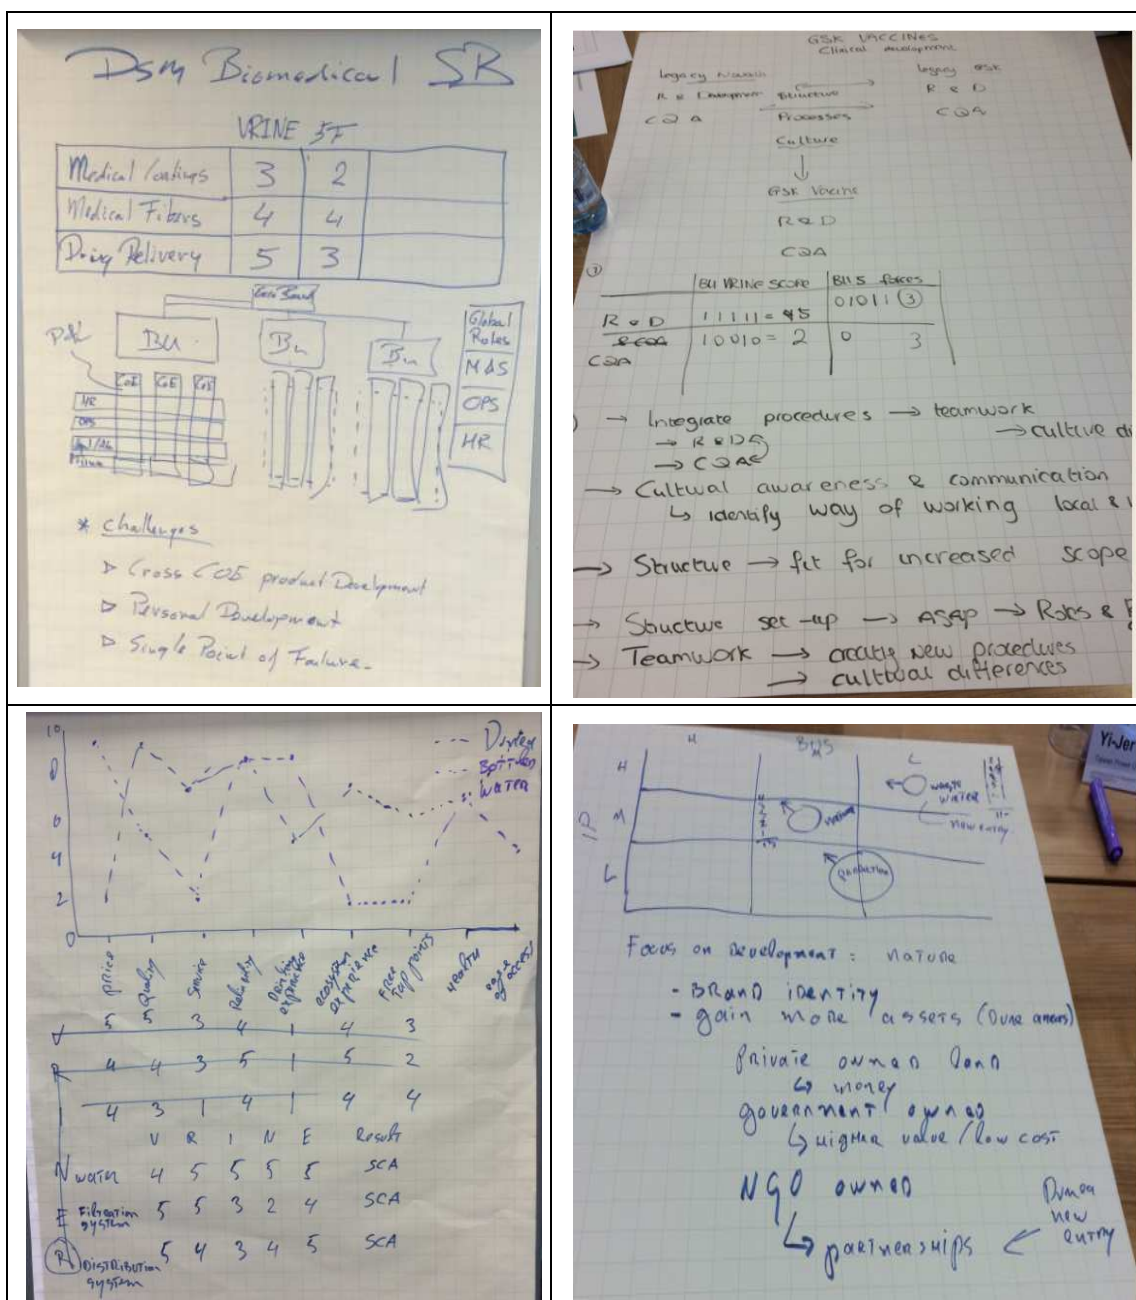 Dsm Biomedical SB
VRINE 5F
Medical Coatings 3 2
Medical Fibers 4 4
Drug Delivery 5 3
BU Bu Bu
Global
Roles
M&S
OPS
HR
CoE CoE CoE
HR
OPS
* Challenges
▷ Cross COE product Development
▷ Personal Development
▷ Single Point of Failure.
GSK VACCINES
Clinical development
legacy Novartis legacy GSK
R & Development Structure R & D
CQA Processes CQA
Culture
GSK Vaccine
R & D
CQA
①
BU VRINE SCORE BU 5 forces
R & D 11111 = 5 01011 ③
CQA 10010 = 2 0 3
→ Integrate procedures → teamwork
→ R & D → culture
→ CQA
→ Cultural awareness & communication
↳ identify way of working local &
→ Structure → fit for increased scope
→ Structure set-up → ASAP → Roles &
→ Teamwork → creating new procedures
→ cultural differences
10
8
6
4
2
0
Bottled
Water
Price
Quality
Service
Reliability
Drinking experience
ecosystem experience
Free Tap points
Health
ease of access
5 5 3 4 1 4 3
4 4 3 5 1 5 2
4 3 1 4 1 4 4
V R I N E Result
N water 4 5 5 5 5 SCA
E Filtration system 5 5 3 2 4 SCA
R Distribution system 5 4 3 4 5 SCA
Yi-Jen
H M L
H
M
L
waste
water
new entry
nature
production
Focus on Development: nature
- BRAND identity
- gain more assets (Dune areas)
private owned land
↳ money
government owned
↳ Higher value / low cost
NGO owned
↳ partnerships
Dunea
new
entry